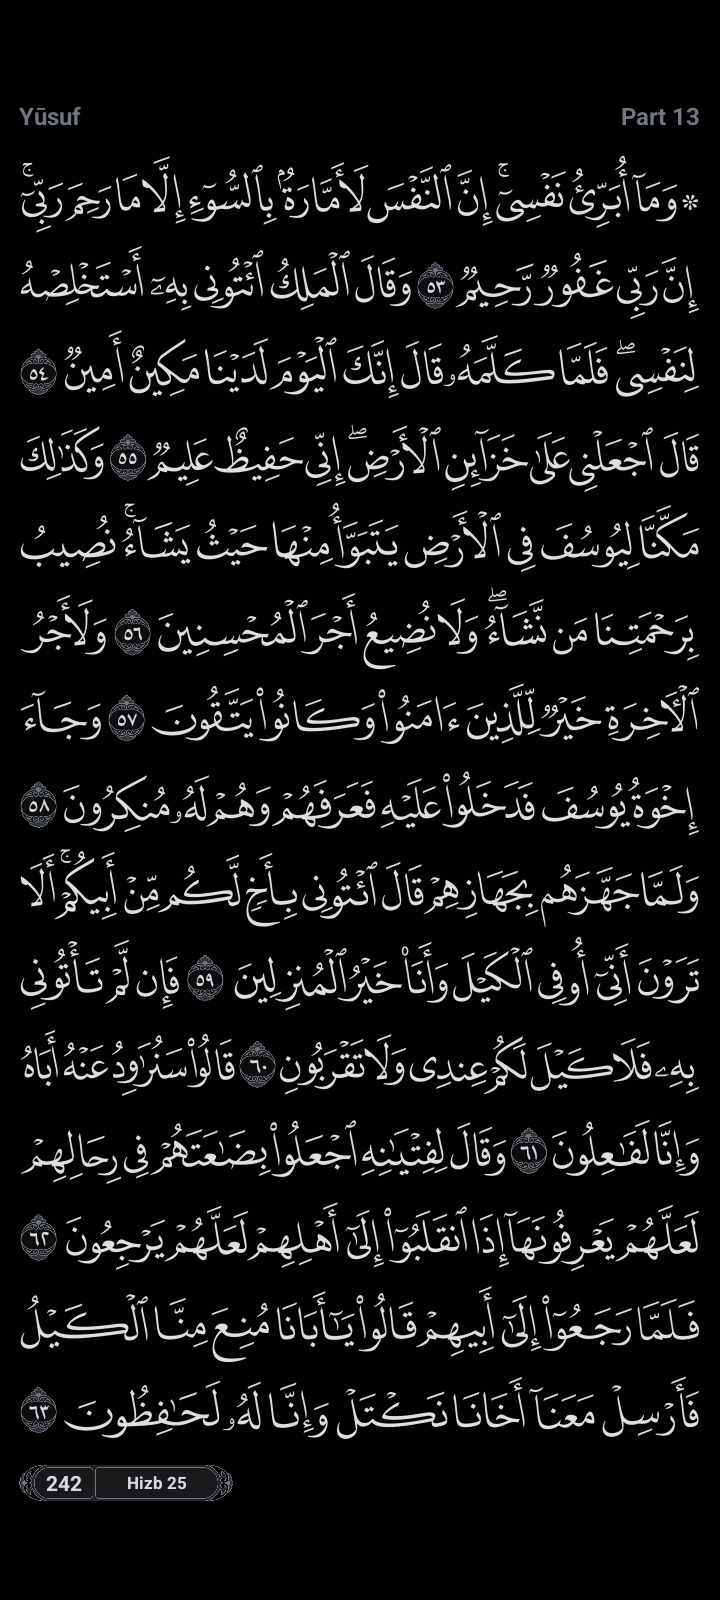 Yūsuf
Part 13
۞ وَمَآ أُبَرِّئُ نَفْسِىٓ ۚ إِنَّ ٱلنَّفْسَ لَأَمَّارَةٌۢ بِٱلسُّوٓءِ إِلَّا مَا رَحِمَ رَبِّىٓ ۚ
إِنَّ رَبِّى غَفُورٌ رَّحِيمٌ ٥٣ وَقَالَ ٱلْمَلِكُ ٱئْتُونِى بِهِۦٓ أَسْتَخْلِصْهُ
لِنَفْسِى ۖ فَلَمَّا كَلَّمَهُۥ قَالَ إِنَّكَ ٱلْيَوْمَ لَدَيْنَا مَكِينٌ أَمِينٌ ٥٤
قَالَ ٱجْعَلْنِى عَلَىٰ خَزَآئِنِ ٱلْأَرْضِ ۖ إِنِّى حَفِيظٌ عَلِيمٌ ٥٥ وَكَذَٰلِكَ
مَكَّنَّا لِيُوسُفَ فِى ٱلْأَرْضِ يَتَبَوَّأُ مِنْهَا حَيْثُ يَشَآءُ ۚ نُصِيبُ
بِرَحْمَتِنَا مَن نَّشَآءُ ۖ وَلَا نُضِيعُ أَجْرَ ٱلْمُحْسِنِينَ ٥٦ وَلَأَجْرُ
ٱلْـَٔاخِرَةِ خَيْرٌ لِّلَّذِينَ ءَامَنُوا۟ وَكَانُوا۟ يَتَّقُونَ ٥٧ وَجَآءَ
إِخْوَةُ يُوسُفَ فَدَخَلُوا۟ عَلَيْهِ فَعَرَفَهُمْ وَهُمْ لَهُۥ مُنكِرُونَ ٥٨
وَلَمَّا جَهَّزَهُم بِجَهَازِهِمْ قَالَ ٱئْتُونِى بِأَخٍ لَّكُم مِّنْ أَبِيكُمْ ۚ أَلَا
تَرَوْنَ أَنِّىٓ أُوفِى ٱلْكَيْلَ وَأَنَا۠ خَيْرُ ٱلْمُنزِلِينَ ٥٩ فَإِن لَّمْ تَأْتُونِى
بِهِۦ فَلَا كَيْلَ لَكُمْ عِندِى وَلَا تَقْرَبُونِ ٦٠ قَالُوا۟ سَنُرَٰوِدُ عَنْهُ أَبَاهُ
وَإِنَّا لَفَـٰعِلُونَ ٦١ وَقَالَ لِفِتْيَـٰنِهِ ٱجْعَلُوا۟ بِضَـٰعَتَهُمْ فِى رِحَالِهِمْ
لَعَلَّهُمْ يَعْرِفُونَهَآ إِذَا ٱنقَلَبُوٓا۟ إِلَىٰٓ أَهْلِهِمْ لَعَلَّهُمْ يَرْجِعُونَ ٦٢
فَلَمَّا رَجَعُوٓا۟ إِلَىٰٓ أَبِيهِمْ قَالُوا۟ يَـٰٓأَبَانَا مُنِعَ مِنَّا ٱلْكَيْلُ
فَأَرْسِلْ مَعَنَآ أَخَانَا نَكْتَلْ وَإِنَّا لَهُۥ لَحَـٰفِظُونَ ٦٣
242 Hizb 25